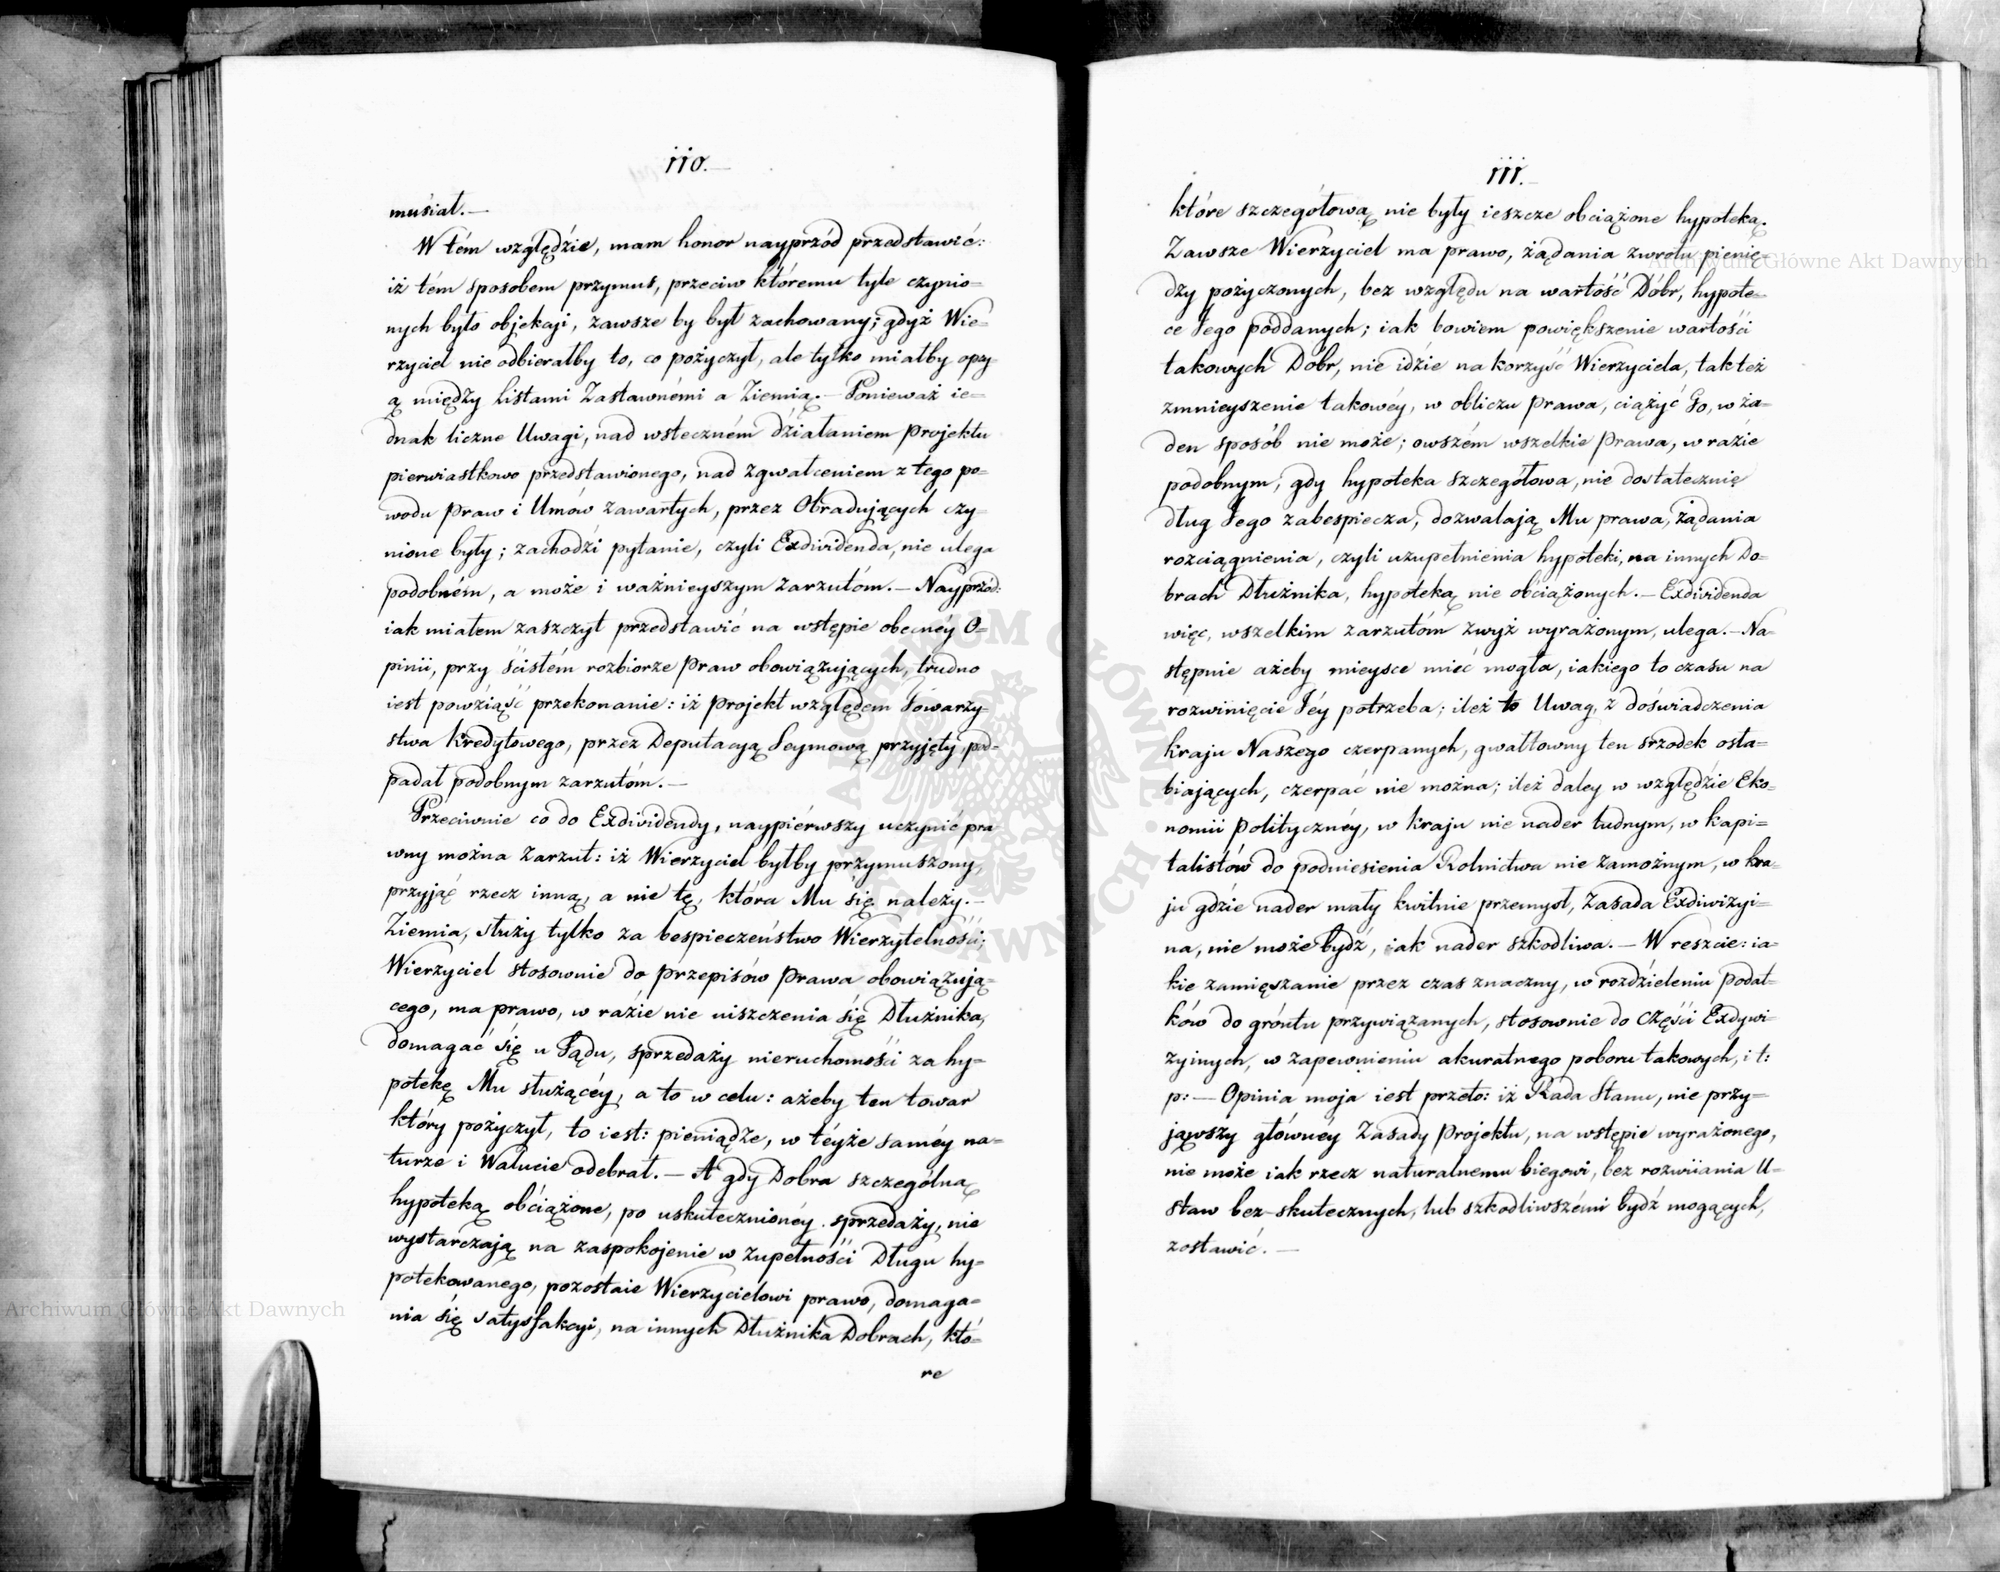 110.—
musiał.—
W tém względzie, mam honor nayprzód przedstawić:
iż tém sposobem przymus, przeciw któremu tyle czynio=
nych było objekcji, zawsze by był zachowany; gdyż Wie=
rzyciel nie odbierałby to, co pożyczył, ale tylko miałby opy
ą między Listami Zastawnémi a Ziemią.— Ponieważ ie=
dnak liczne Uwagi, nad wsteczném działaniem Projektu
pierwiastkowo przedstawionego, nad zgwałceniem z tego po=
wodu Praw i Umów zawartych, przez Obradujących czy=
nione były; zachodzi pytanie, czyli Exdividenda, nie ulega
podobném, a może i ważnieyszym zarzutóm.— Nayprzód:
iak miałem zaszczyt przedstawić na wstępie obecnéy O=
pinii, przy ścistém rozbiorze Praw obowiązujących, trudno
iest powziąść przekonanie: iż Projekt względem Towarzy=
stwa Kredytowego, przez Deputacyą Seymową przyjęty, pod=
padał podobnym zarzutóm.—
Przeciwnie co do Exdividendy, naypiérwszy uczynić pra
wny można Zarzut: iż Wierzyciel byłby przymuszony,
przyjąć rzecz inną, a nie tę, która Mu się należy.—
Ziemia, służy tylko za bespieczeństwo Wierzytelności;
Wierzyciel stosownie do przepisów Prawa obowiązują=
cego, ma prawo, w razie nie uiszczenia się Dłużnika,
domagać się u Sądu, sprzedaży nieruchomości za hy=
potekę Mu służącéy, a to w celu: ażeby ten towar
który pożyczył, to iest: pieniądze, w téyże saméy na=
turze i Walucie odebrał.— A gdy Dobra szczególną
hypoteką obciążone, po uskutecznionéy sprzedaży, nie
wystarczają na zaspokojenie w zupełności Długu hy=
potekowanego, pozostaie Wierzycielowi prawo, domaga=
nia się satysfakcyi, na innych Dłużnika Dobrach, któ=
re
111.—
które szczegółową nie były ieszcze obciążone hypoteką.
Zawsze Wierzyciel ma prawo, żądania zwrotu pienię=
dzy pożyczonych, bez względu na wartość Dóbr, hypote=
ce Jego poddanych; iak bowiem powiększenie wartości
takowych Dóbr, nie idzie na korzyść Wierzyciela, tak też
zmnieyszenie takowéy, w obliczu Prawa, ciążyć Go, w ża=
den sposób nie może; owszém wszelkie Prawa, w razie
podobnym, gdy hypoteka szczegółowa, nie dostatecznie
dług Jego zabespiecza, dozwalają Mu prawa, żądania
rozciągnienia, czyli uzupełnienia hypoteki, na innych Do=
brach Dłużnika, hypoteką nie obciążonych.— Exdividenda
więc, wszelkim zarzutóm zwyż wyrażonym, ulega.— Na=
stępnie ażeby mieysce mieć mogła, iakiego to czasu na
rozwinięcie Jéy potrzeba; ileż to Uwag, z doświadczenia
kraju Naszego czerpanych, gwałtowny ten srzodek osła=
biających, czerpać nie można; ileż daley w względzie Eko=
nomii Polityczney, w kraju nie nader ludnym, w kapi=
talistów do podniesienia Rolnictwa nie zamożnym, w kra=
ju gdzie nader mały kwitnie przemysł, Zasada Exdiwizyi=
na, nie może bydź, iak nader szkodliwa.— W reszcie: ia=
kie zamięszanie przez czas znaczny, w rozdzieleniu podat=
ków do gróntu przywiązanych, stosownie do Części Exdywi=
zyinych, w zapewnieniu akuratnego poboru takowych, i t:
p:— Opinia moja iest przeto: iż Rada Stanu, nie przy=
jąwszy głównéy Zasady Projektu, na wstępie wyrażonego,
nie może iak rzecz naturalnemu biegowi, bez rozwiiania U=
staw bez-skutecznych, lub szkodliwszémi bydź mogących,
zostawić.—
Archiwum Główne Akt Dawnych
Archiwum Główne Akt Dawnych
ARCHIWUM GŁÓWNE AKT DAWNYCH